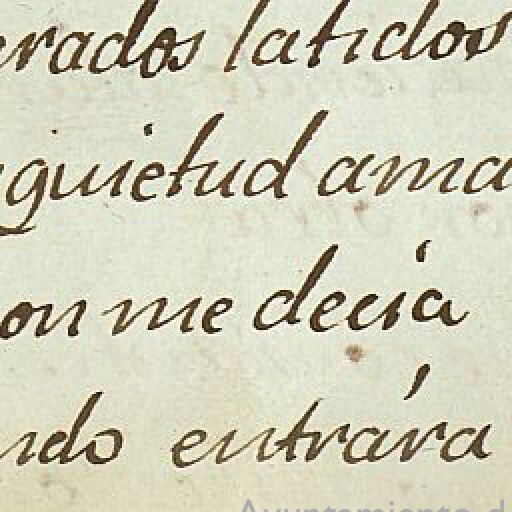 erados latidos
quietud ama
on me decía
ndo entrára
Ayuntamiento d